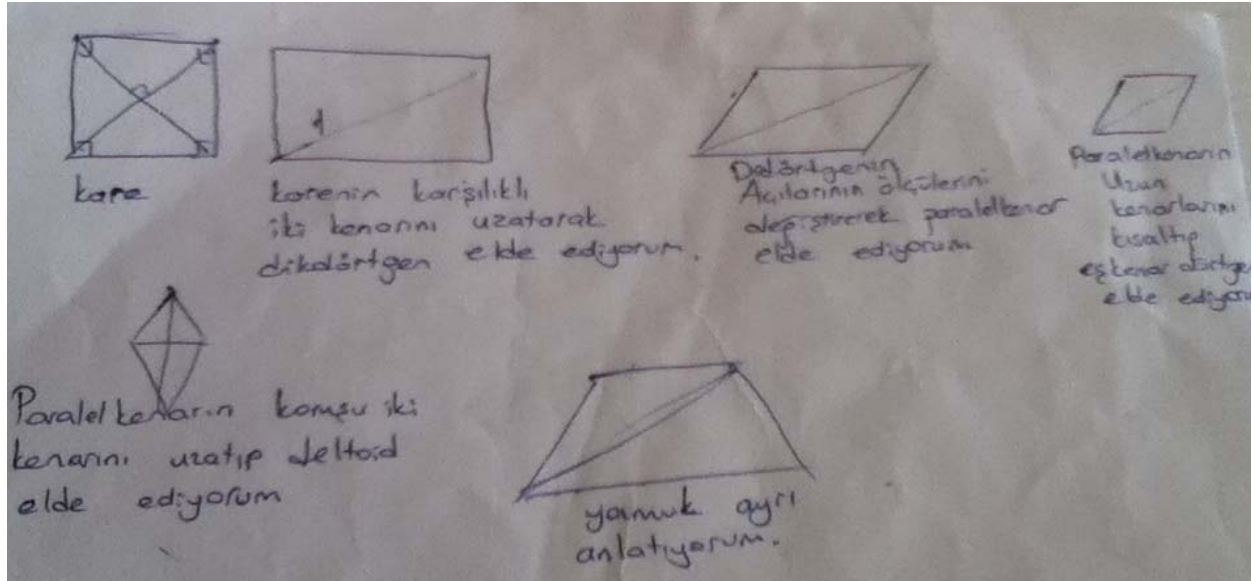 kare
karenin karşılıklı
iki kenarını uzatarak
dikdörtgen elde ediyorum.
Ddörtgenin
Açılarının ölçülerini
değiştirerek paralelkenar
elde ediyorum
Paralelkenarın
Uzun
kenarlarını
kısaltıp
eşkenar dörtgen
elde ediyoru
Paralelkenarın komşu iki
kenarını uzatıp deltoid
elde ediyorum
yamuk ayrı
anlatıyorum.